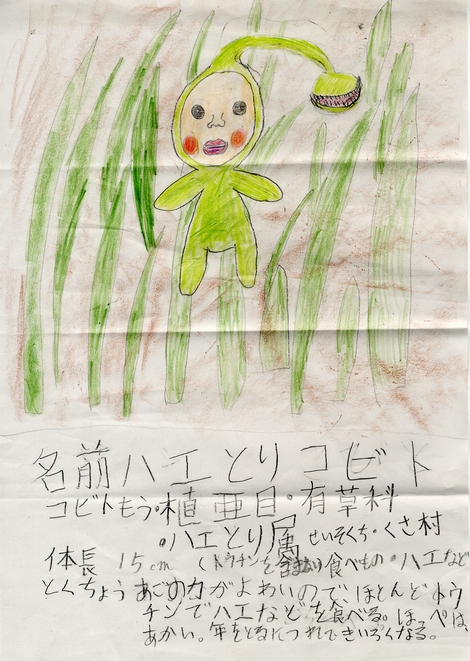 名前ハエとりコビト
コビトもう・植亜目・有草科
・ハエとり属 せいそくち・くさ村
体長 15cm (トウチンを含まない) 食べもの・ハエなど
とくちょう あごの力がよわいので、ほとんどトウ
チンでハエなどを食べる。ほっぺは、
あかい。年をとるにつれてきいろくなる。